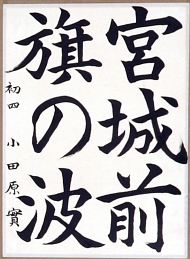 宮城前
旗の波
初四 小田原實